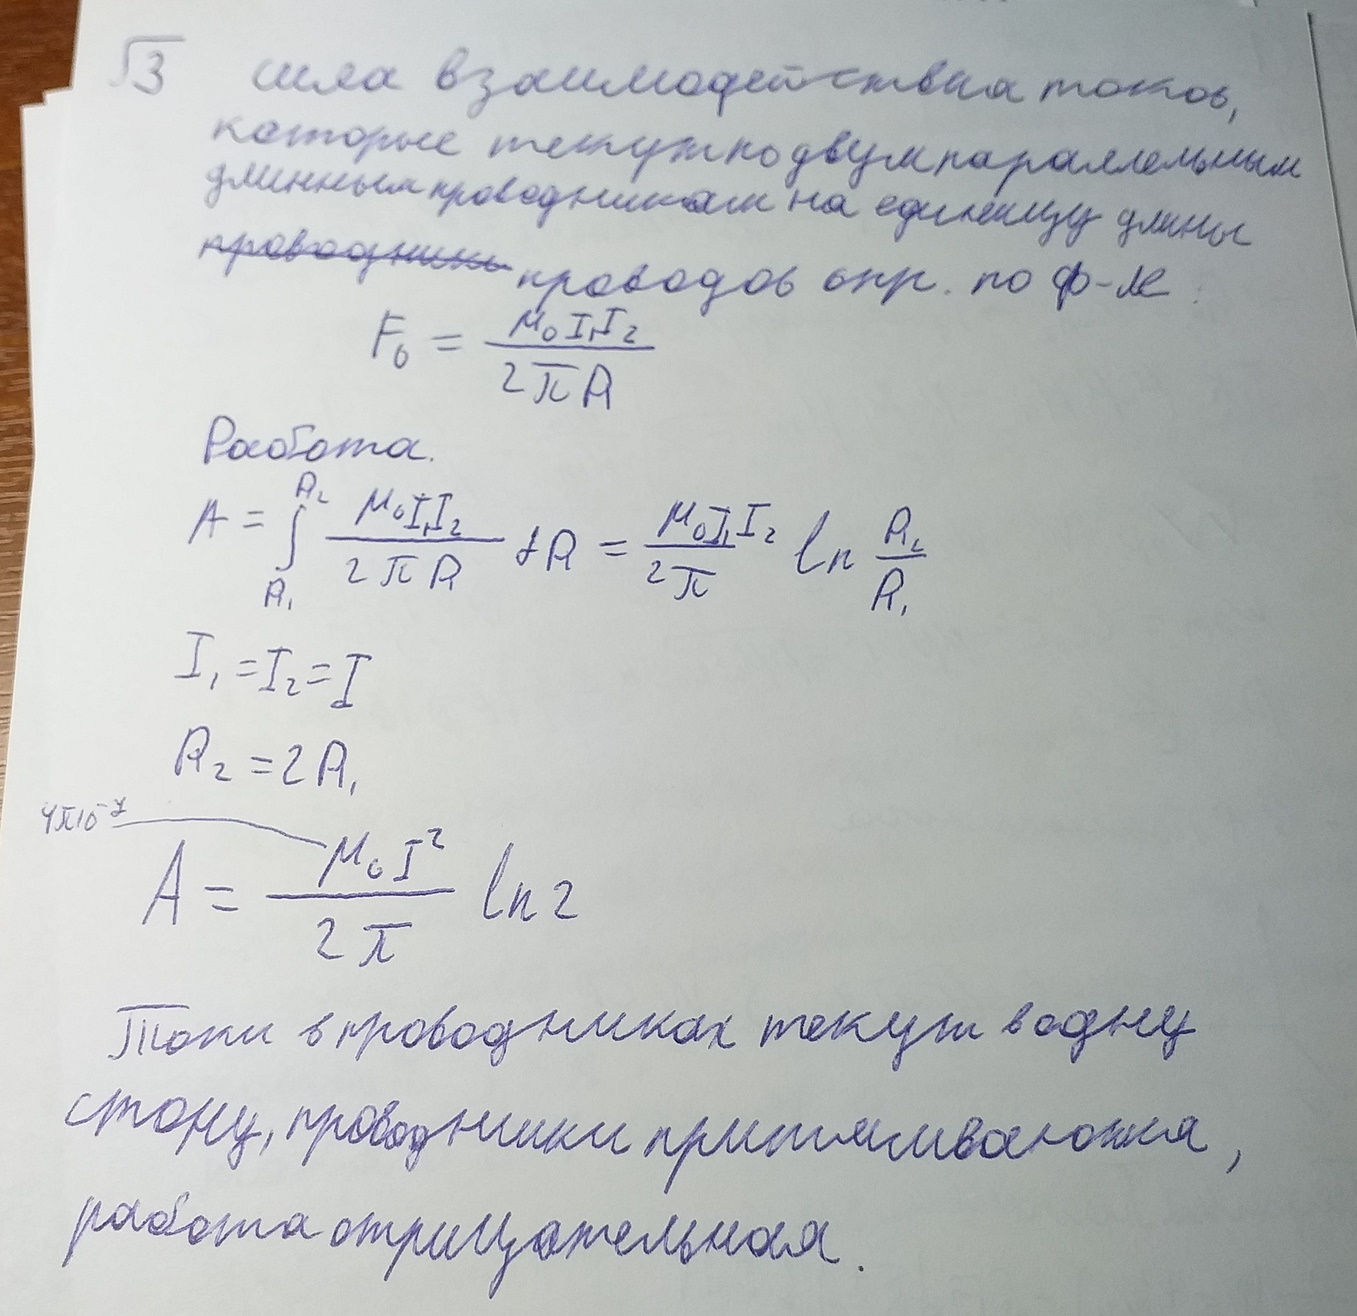 √3 сила взаимодействия токов,
которые текут по двум параллельным
длинным проводникам на единицу длины
проводник проводов опр. по ф-ле:
F₀ = μ₀I₁I₂ / 2πR
Работа.
A = ∫_{R₁}^{R₂} μ₀I₁I₂ / 2πR dR = μ₀I₁I₂ / 2π ln R₂/R₁
I₁ = I₂ = I
R₂ = 2R₁
4π10⁻⁷
A = μ₀I² / 2π ln 2
Токи в проводниках текут в одну
стону, проводники притягиваются,
работа отрицательная.